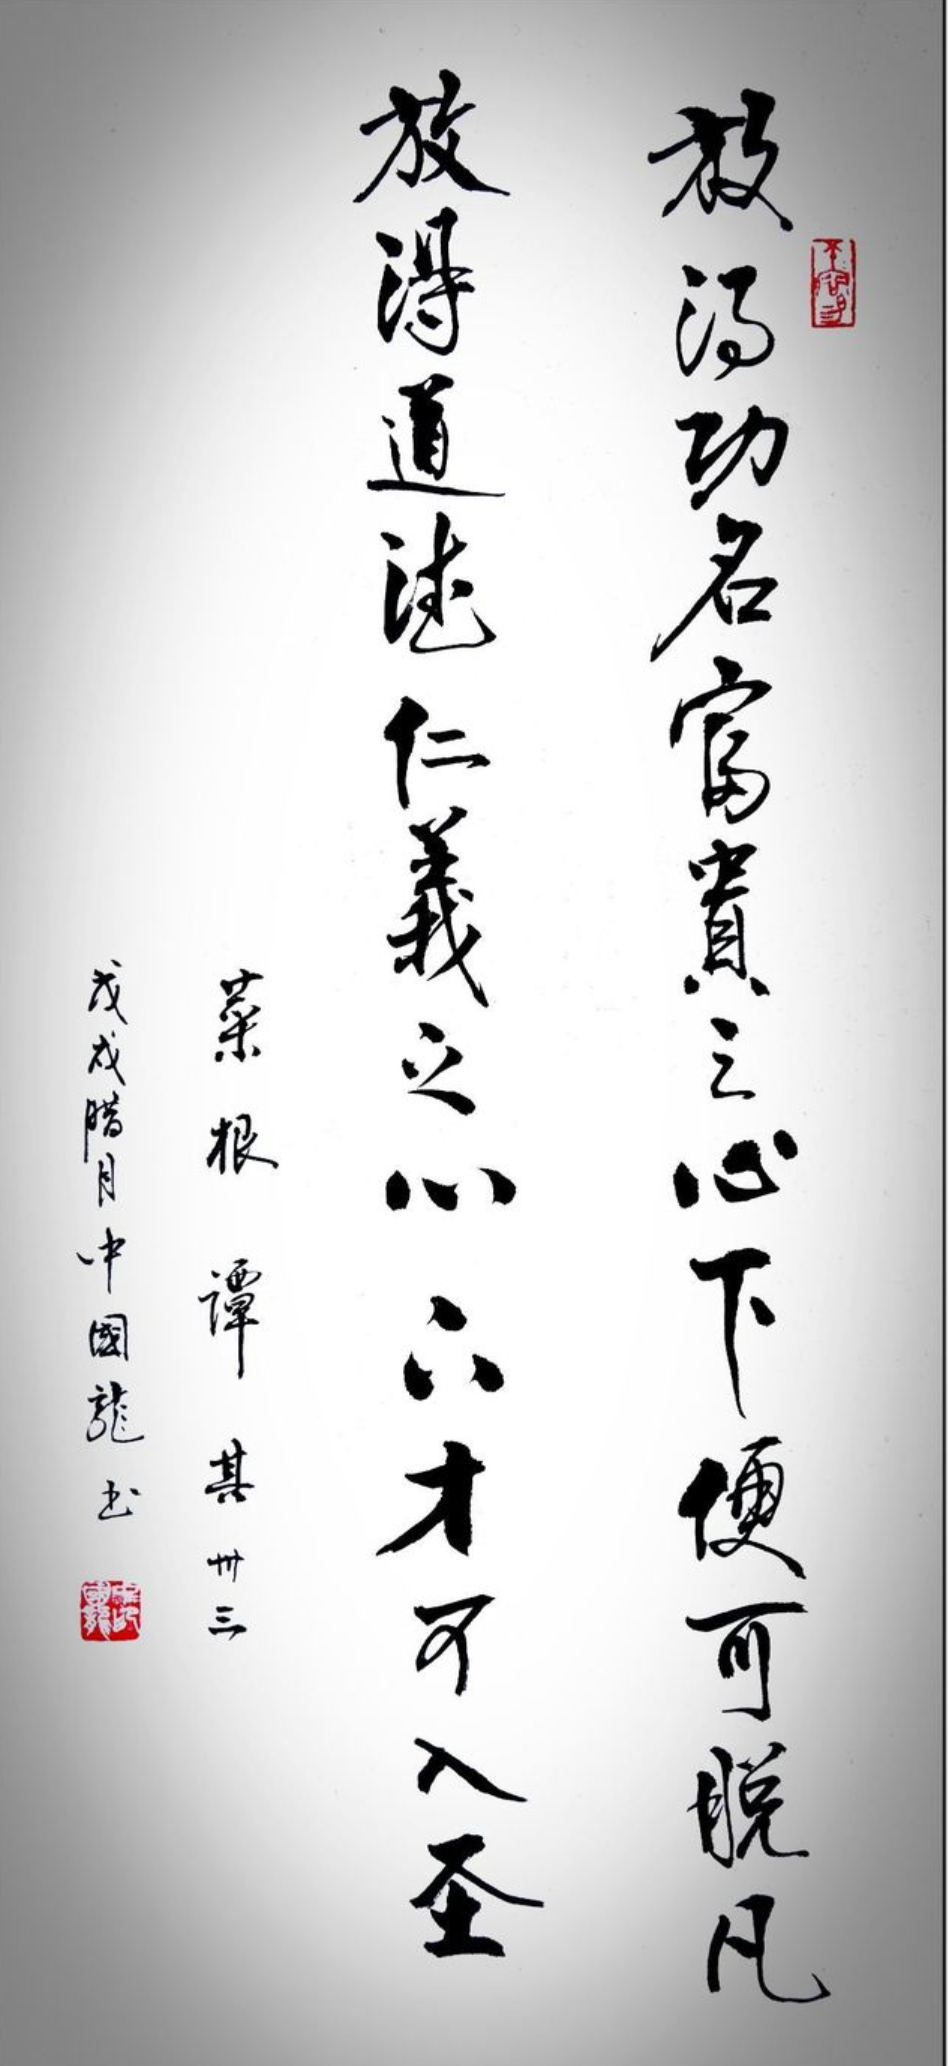 放得功名富貴之心下便可脱凡
放得道德仁義之心下才可入圣
菜根譚其卅三
戊戌腊月中國龍书